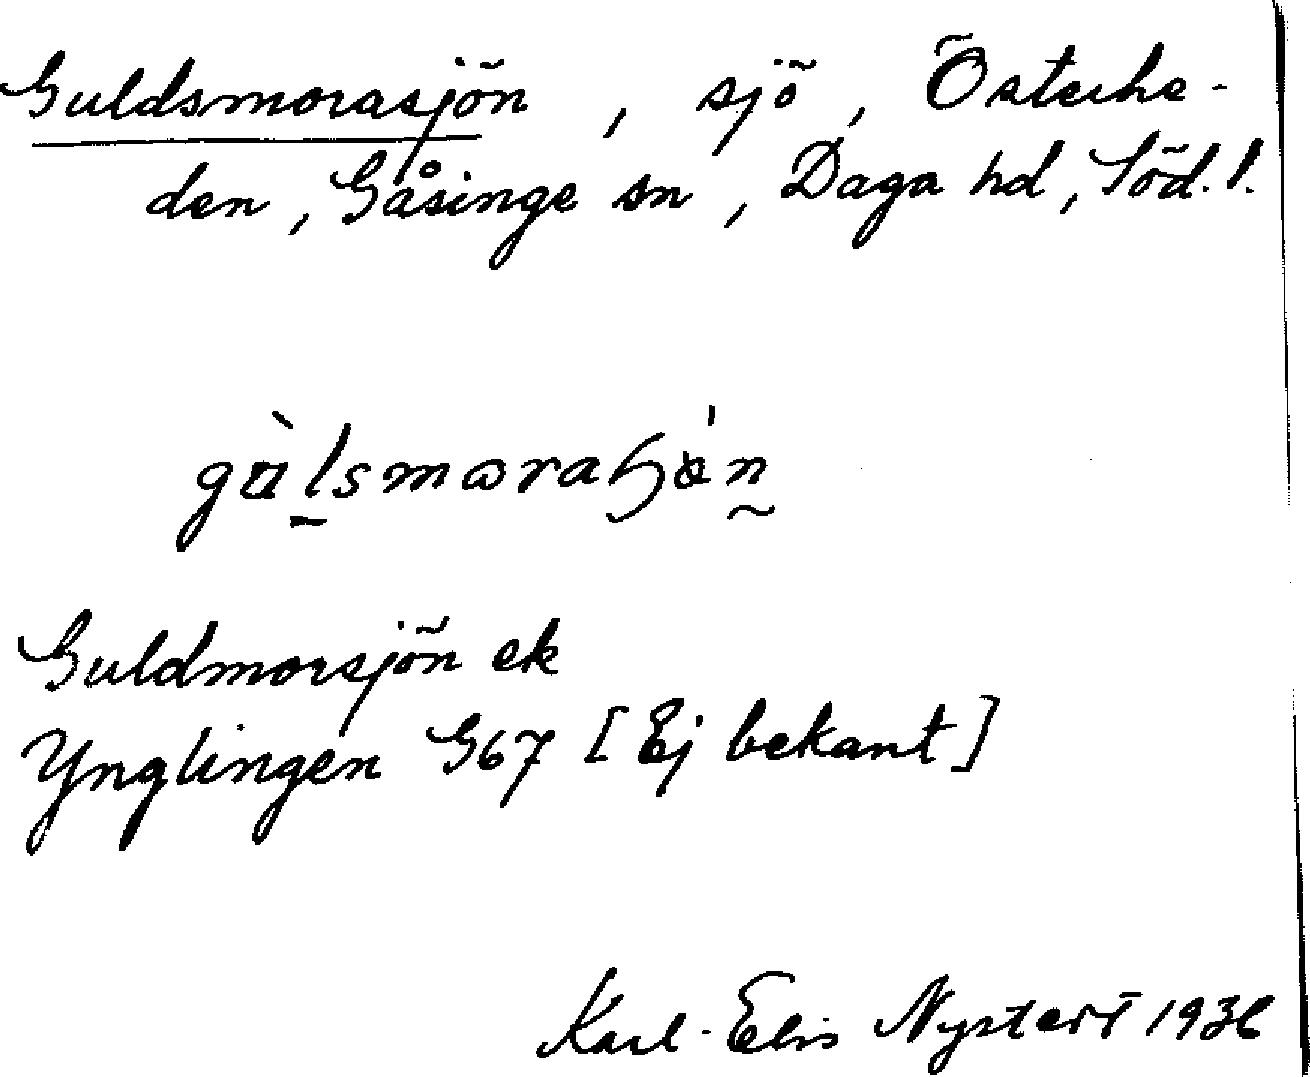 Guldsmorasjön, sjö, Österhe-
den, Gåsinge sn, Daga hd, Söd. l.
Guldmorsjön ek
Ynglingen G67 [Ej bekant]
Karl-Elis Nystert 1936